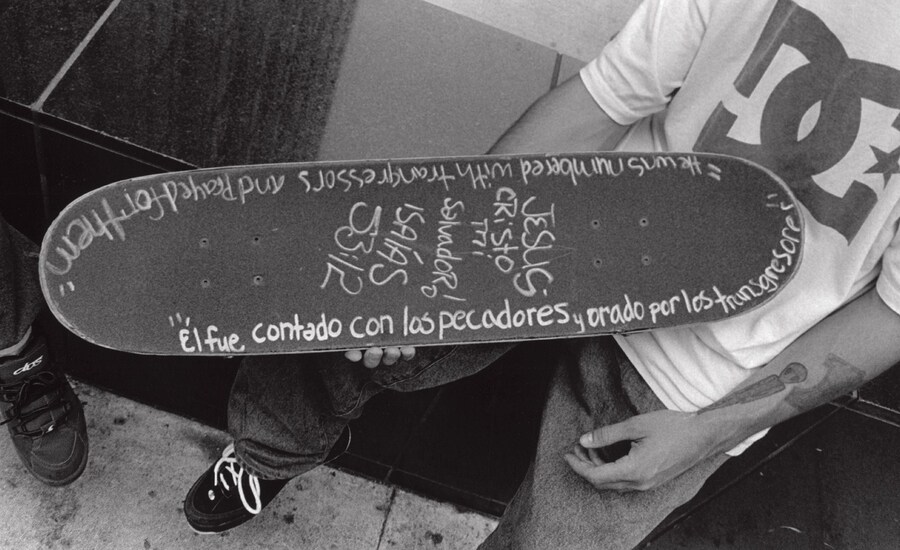 "He was numbered with trangressors and Prayed for them"
JESUS
CRISTO
mi
Salvador!
ISAIAS
53:12
"Él fue contado con los pecadores y orado por los transgresores"
DC